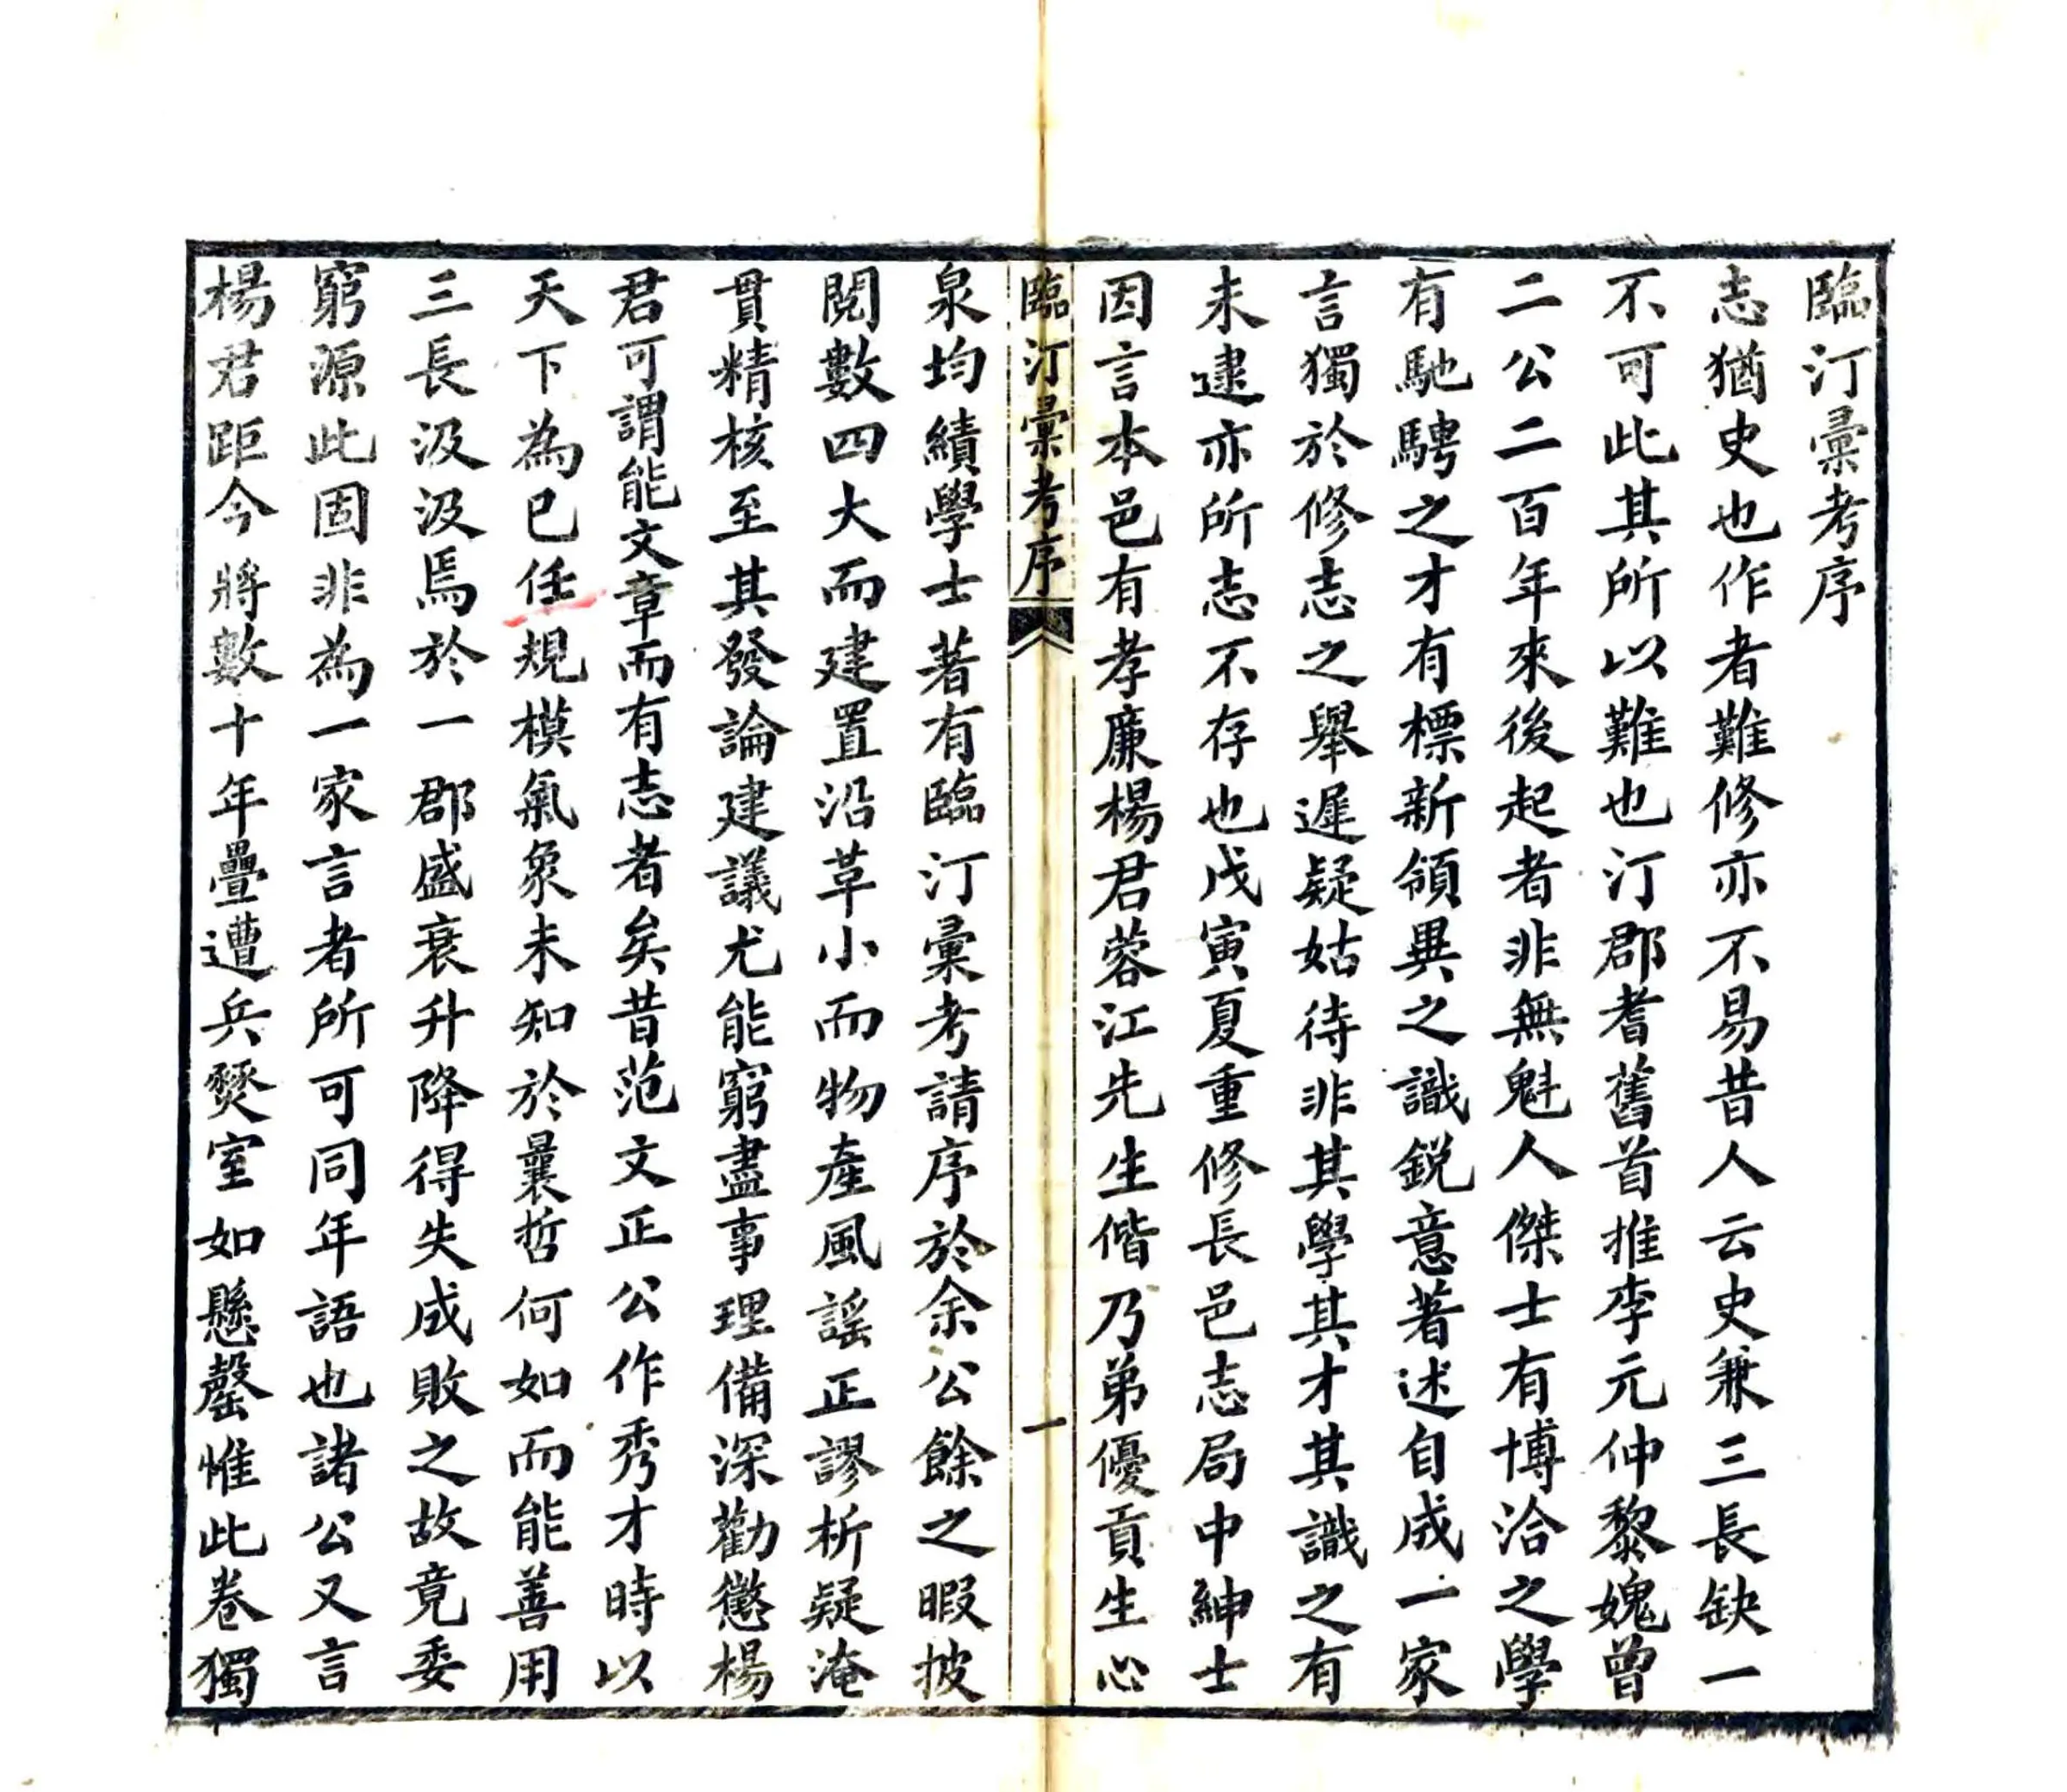 臨汀彙考序
志猶史也作者難修亦不易昔人云史兼三長缺一
不可此其所以難也汀郡耆舊首推李元仲黎媿曾
二公二百年來後起者非無魁人傑士有博洽之學
有馳騁之才有標新領異之識銳意著述自成一家
言獨於修志之舉遲疑姑待非其學其才其識之有
未逮亦所志不存也戊寅夏重修長邑志局中紳士
因言本邑有孝廉楊君蓉江先生偕乃弟優貢生心
臨汀彙考序
一
泉均績學士著有臨汀彙考請序於余公餘之暇披
閱數四大而建置沿革小而物產風謠正謬析疑淹
貫精核至其發論建議尤能窮盡事理備深勸懲楊
君可謂能文章而有志者矣昔范文正公作秀才時以
天下為已任規模氣象未知於曩哲何如而能善用
三長汲汲焉於一郡盛衰升降得失成敗之故竟委
窮源此固非為一家言者所可同年語也諸公又言
楊君距今將數十年疊遭兵燹室如懸罄惟此卷獨